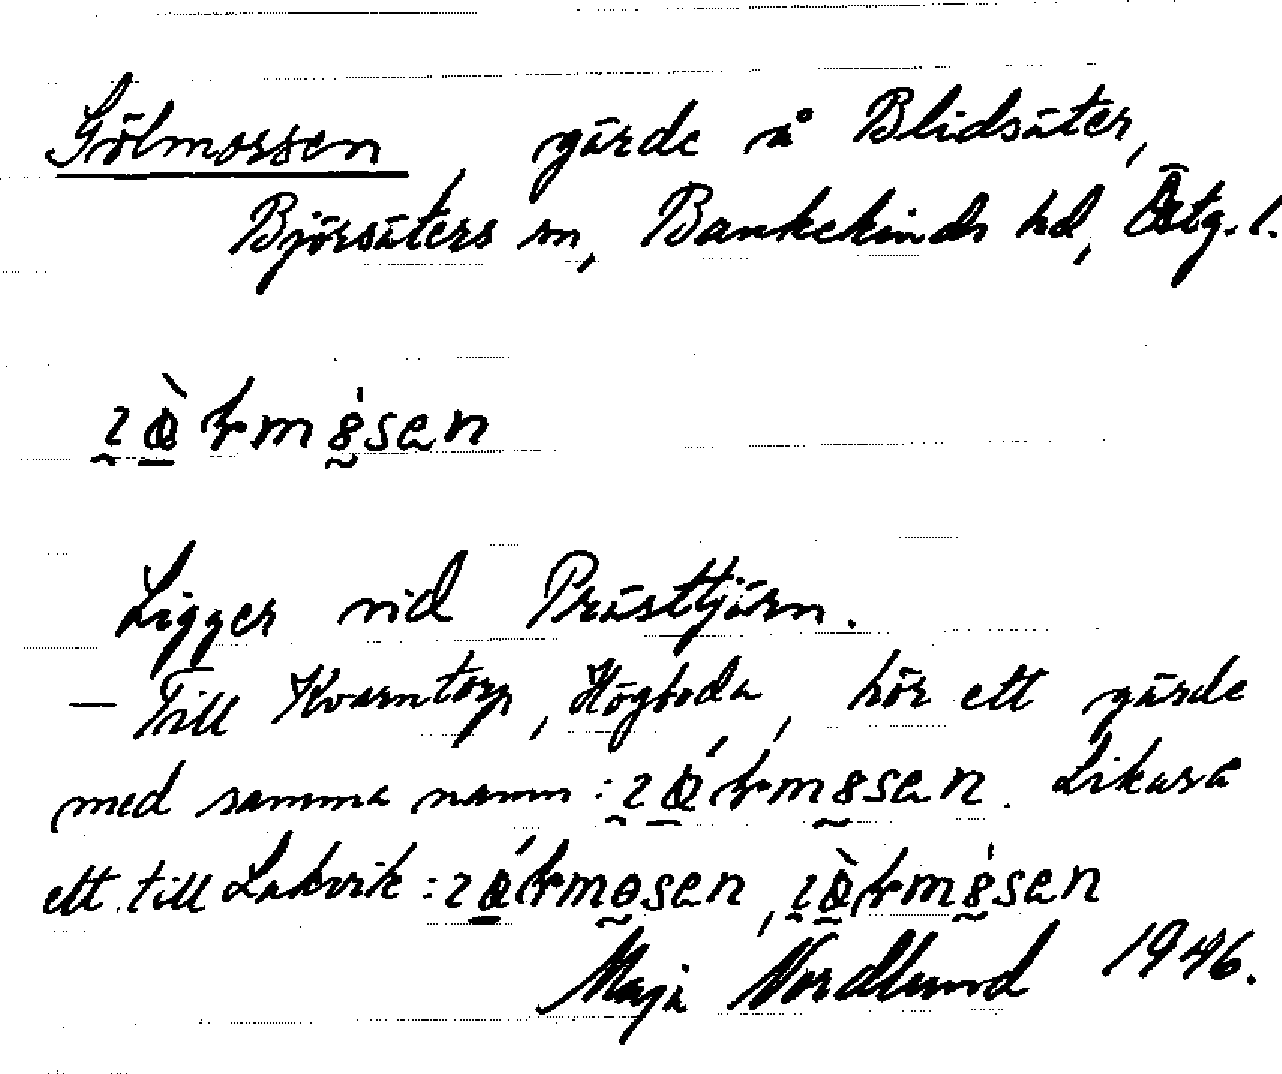 Gölmossen, gärde å Blidsäter,
Björsäters sn, Bankekinds hd, Östg. l.
Ligger vid Prästtjärn.
— Till Kvarntorp, Högboda, hör ett gärde
med samma namn: . Likaså
ett till Lakvik: ,
Maja Nordlund 1946.